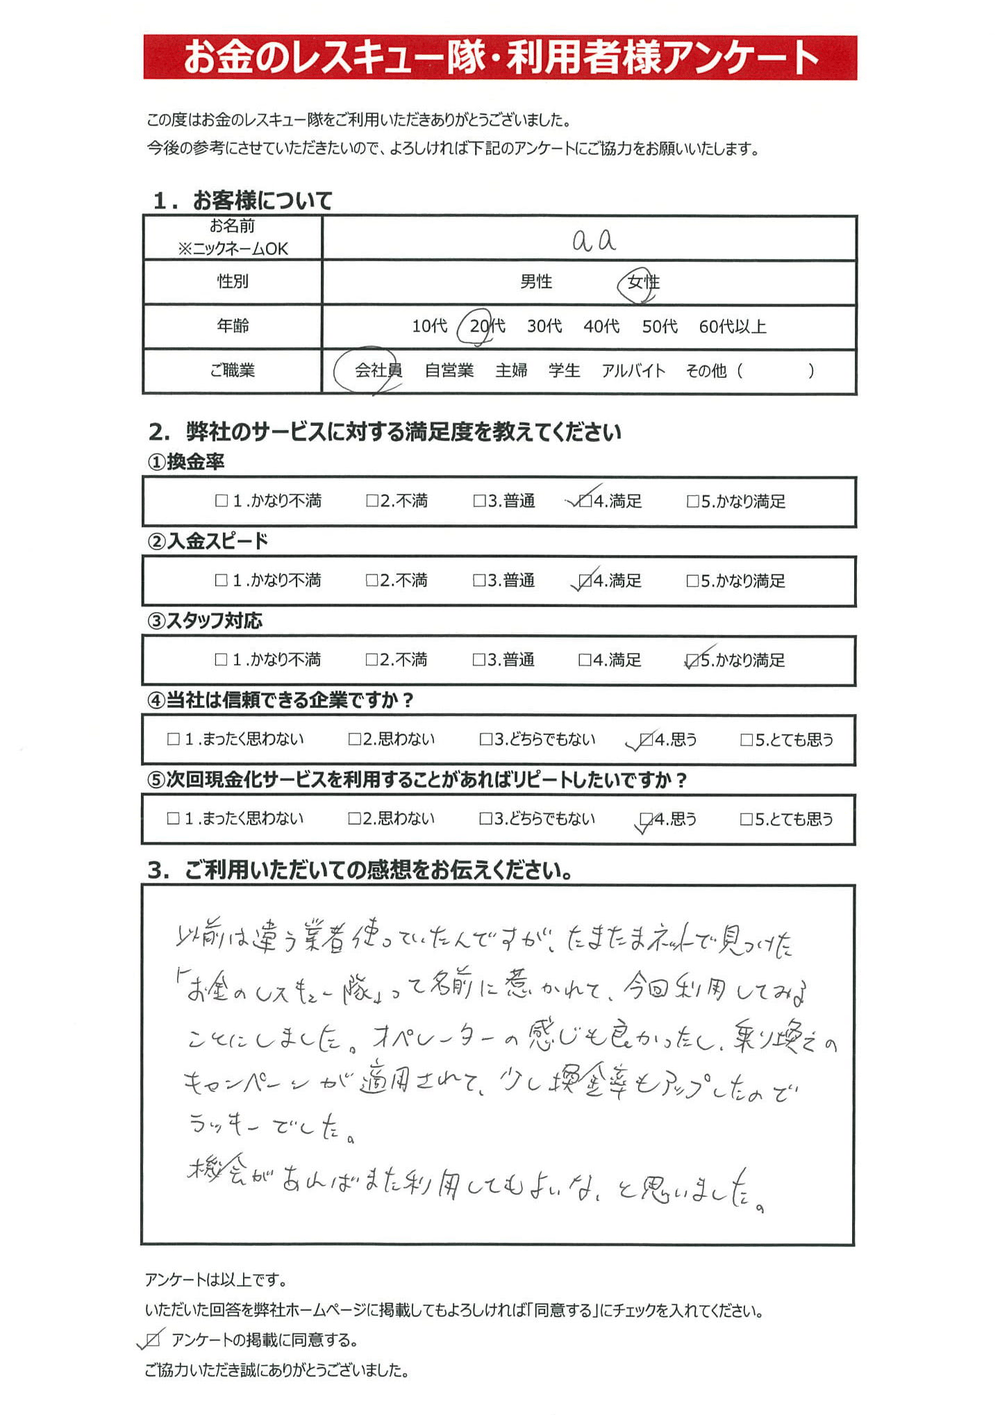 お金のレスキュー隊・利用者様アンケート
この度はお金のレスキュー隊をご利用いただきありがとうございました。
今後の参考にさせていただきたいので、よろしければ下記のアンケートにご協力をお願いいたします。
1. お客様について
お名前
※ニックネームOK
aa
性別 男性 女性
年齢 10代 20代 30代 40代 50代 60代以上
ご職業 会社員 自営業 主婦 学生 アルバイト その他 ( )
2. 弊社のサービスに対する満足度を教えてください
①換金率
□1.かなり不満 □2.不満 □3.普通 ☑4.満足 □5.かなり満足
②入金スピード
□1.かなり不満 □2.不満 □3.普通 ☑4.満足 □5.かなり満足
③スタッフ対応
□1.かなり不満 □2.不満 □3.普通 □4.満足 ☑5.かなり満足
④当社は信頼できる企業ですか？
□1.まったく思わない □2.思わない □3.どちらでもない ☑4.思う □5.とても思う
⑤次回現金化サービスを利用することがあればリピートしたいですか？
□1.まったく思わない □2.思わない □3.どちらでもない ☑4.思う □5.とても思う
3. ご利用いただいての感想をお伝えください。
以前は違う業者使っていたんですが、たまたまネットで見つけた
「お金のレスキュー隊」って名前に惹かれて、今回利用してみる
ことにしました。オペレーターの感じも良かったし、乗り換えの
キャンペーンが適用されて、少し換金率もアップしたので
ラッキーでした。
機会があればまた利用してもよいな、と思いました。
アンケートは以上です。
いただいた回答を弊社ホームページに掲載してもよろしければ「同意する」にチェックを入れてください。
☑ アンケートの掲載に同意する。
ご協力いただき誠にありがとうございました。